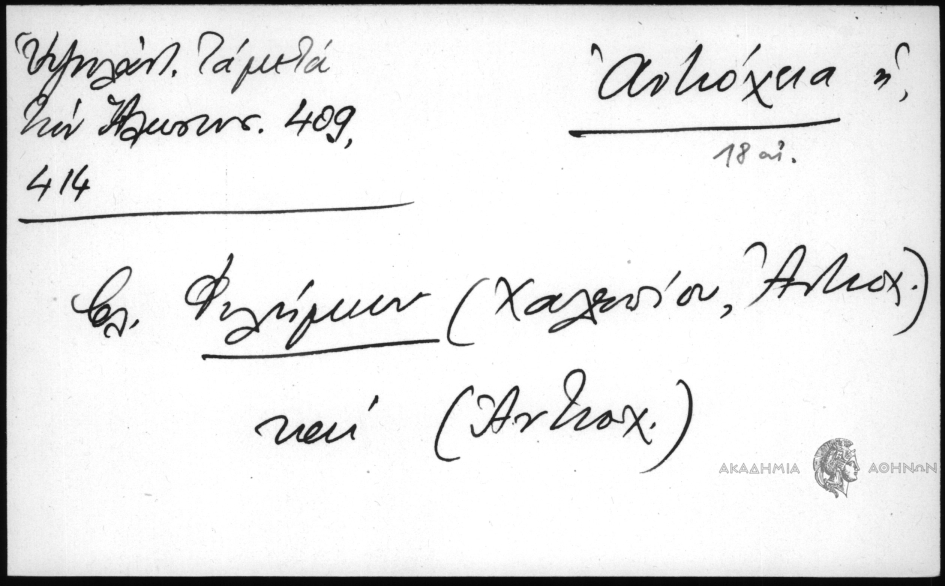 Ὑψηλάντ. Τά μετά
τήν Ἅλωσιν. 409,
414
Ἀντιόχεια ἡ,
18 αἰ.
βλ. Φιλήμων (Χαλεπίου, Ἀντιοχ.)
καί (Ἀντιοχ.)
ΑΚΑΔΗΜΙΑ ΑΘΗΝΩΝ